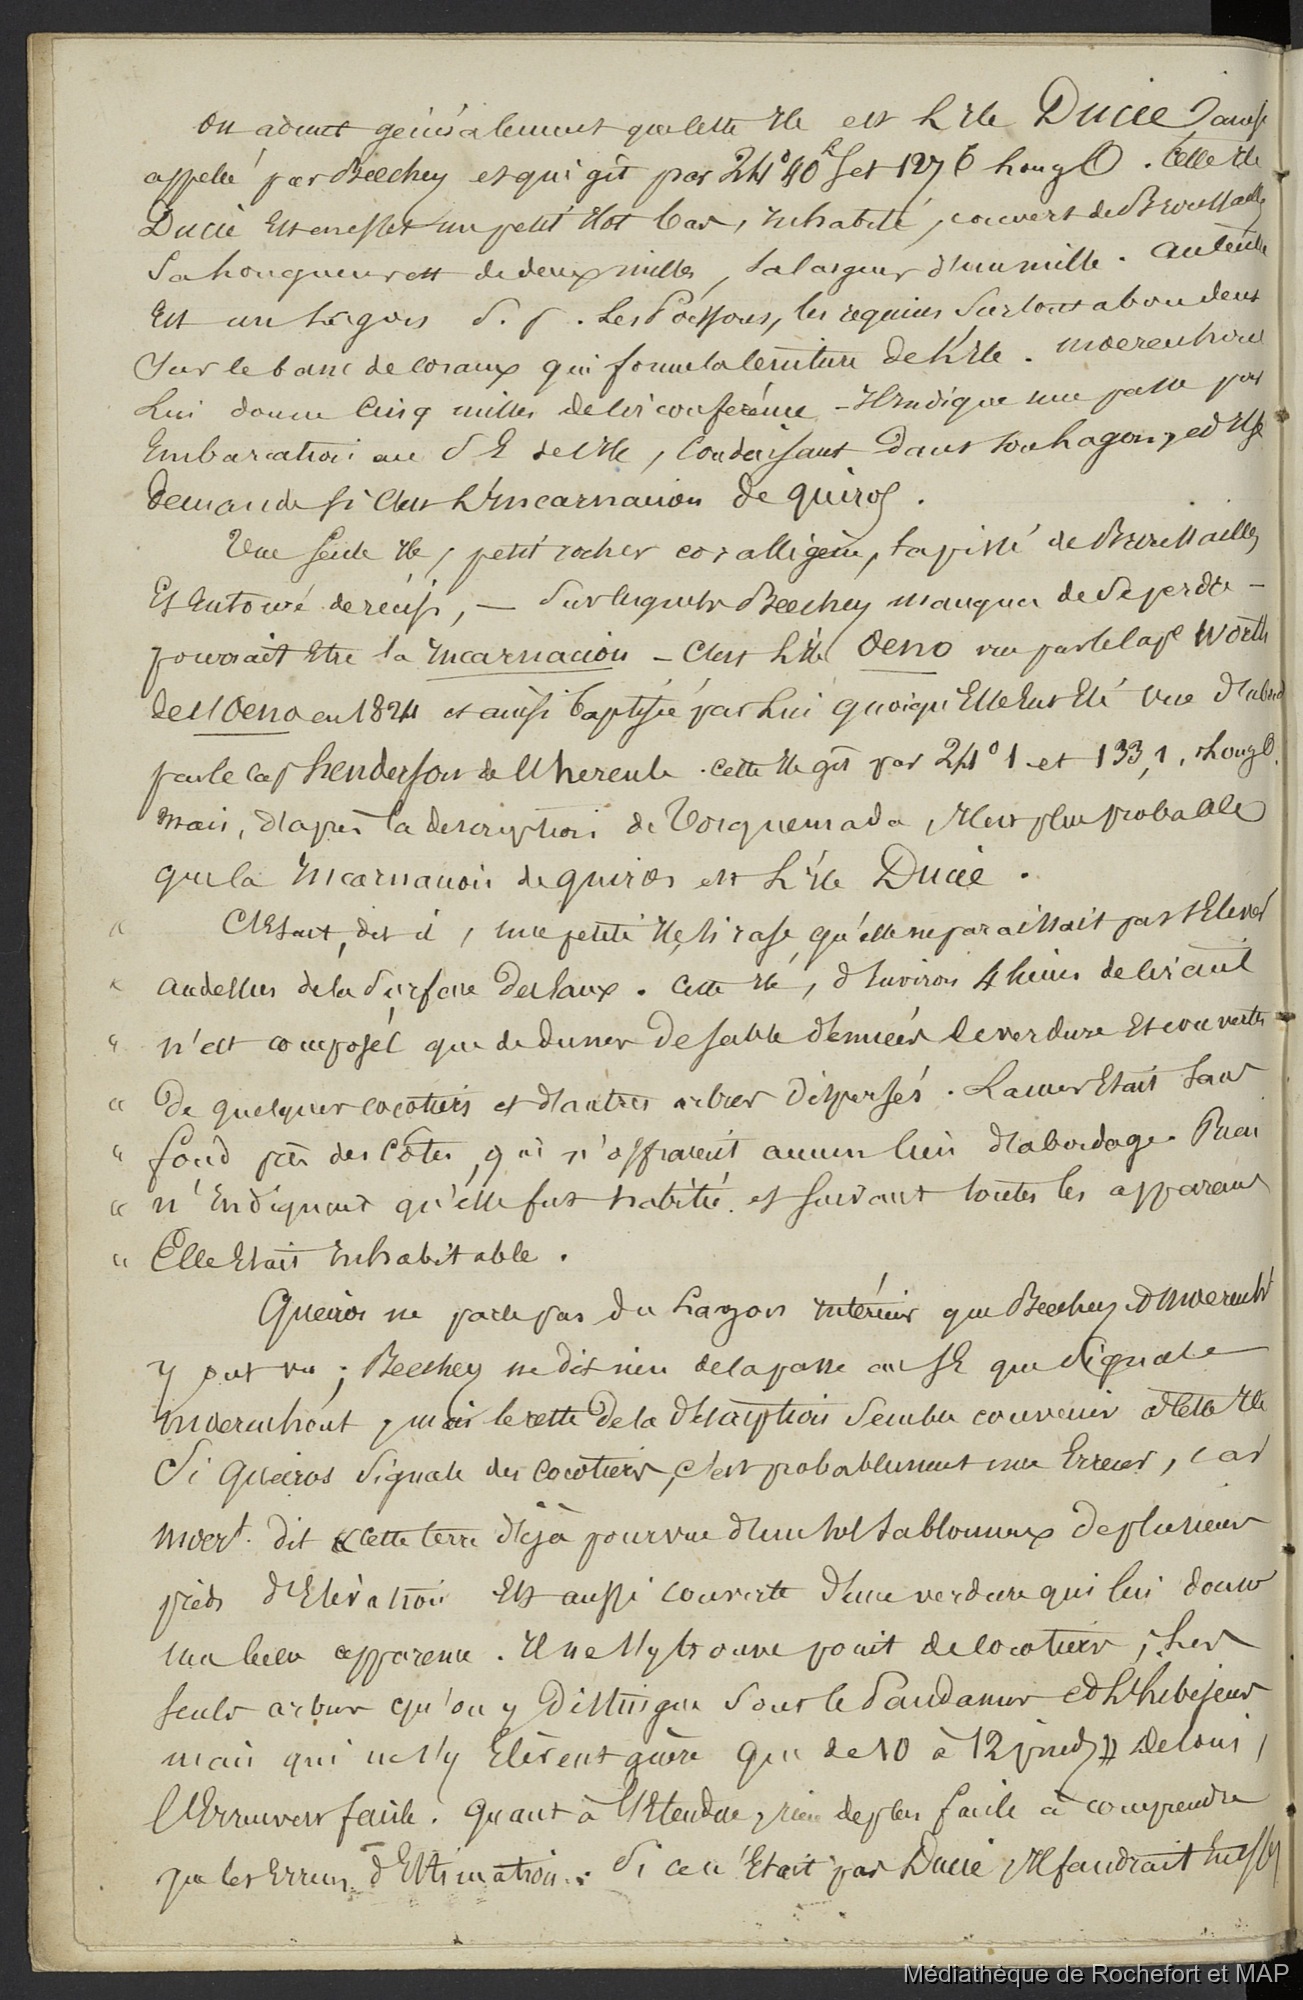 On admet généralement que cette Ile est L'Ile Ducie, ainsi
appelée par Beechey et qui gît par 24° 40' S et 127 6 Long O. Cette Ile
Ducie Est en effet un petit Ilot bas, Inhabité, couvert de Broussailles
Sa Longueur est de deux milles, sa largeur d'un mille. Au centre
Est un Lagon S. p. Les Poissons, les requins Surtout abondent
Sur le banc de coraux qui forme la ceinture de L'Ile. Moerenhout
Lui donne Cinq milles de circonférence - Il Indique une passe pour
Embarcation au S E de L'Ile, Conduisant Dans son Lagon, et Il se
demande si C'est L'Incarnacion de Quiros.
Une seule Ile, petit rocher coralligène, tapissé de Broussailles
Et Entouré de récifs, — Sur lesquels Beechey manqua de se perdre —
pourrait Etre la Incarnacion - C'est L'Ile Oeno vue par le Cap^e Worth
de L'Oeno en 1824 et ainsi baptisée par Lui quoiqu'Elle Eut Eté vue d'abord
par le Cap Henderson de L'hercule. Cette Ile gît par 24° 1 et 133,1, Long O.
Mais, d'après la description de Torquemada, Il est plus probable
que la Incarnacion de Quiros est L'Ile Ducie.
« C'Etait, dit il, une petite Ile, si rase qu'elle ne paraissait pas s'Elever
« au dessus de la Surface des Eaux. Cette Ile, d'Environ 4 lieues de circuit
« n'est composée que de dunes de sable dénuées de verdure Et couvertes
« De quelques cocotiers et d'autres arbres dispersés. La mer Etait sans
« fond près des Côtes, qui n'offraient aucun lieu d'abordage. Rien
« n'Indiquait qu'elle fut habitée. et suivant toutes les apparences
« Elle Etait Inhabitable.
Queiros ne parle pas du Lagon Intérieur que Beechey et Moerenht
y ont vu ; Beechey ne dit rien de la passe au SE que Signale
Moerenhout, mais le reste De la description Semble convenir à cette Ile
Si Queiros Signale des Cocotiers, c'est probablement une Erreur, car
Moert. dit « Cette terre déjà pourvue d'un sol sablonneux De plusieurs
pieds d'Elévation Est aussi couverte d'une verdure qui lui donne
une belle apparence. Il ne s'y trouve point de Cocotiers ; Les
seuls arbres qu'on y Distingue Sont le Pandanus et L'hibiscus
mais qui ne s'y Elèvent guère que de 10 à 12 pieds » De loin,
L'Erreur est facile. Quant à L'Etendue, rien de plus facile à comprendre
que les Erreurs d'Estimation. Si ce n'Etait pas Ducie, Il faudrait
Médiathèque de Rochefort et MAP